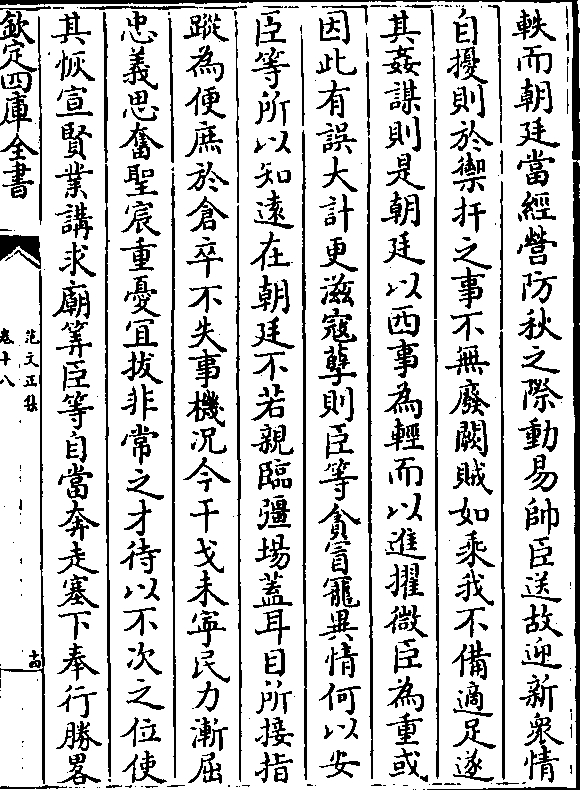 軼而朝廷當經營防秋之際動易帥臣送故迎新衆情
自擾則於禦扞之事不無廢闕賊如乘我不備適足遂
其姦謀則是朝廷以西事為輕而以進擢微臣為重或
因此有誤大計更滋寇孽則臣等貪冒寵異情何以安
臣等所以知遠在朝廷不若親臨彊場蓋耳目所接指
蹤為便庶於倉卒不失事機況今干戈未寧民力漸屈
忠義思奮聖宸重憂宜拔非常之才待以不次之位使
其恢宣賢業講求廟筭臣等自當奔走塞下奉行勝畧
欽定四庫全書
范文正集
卷十八
十四